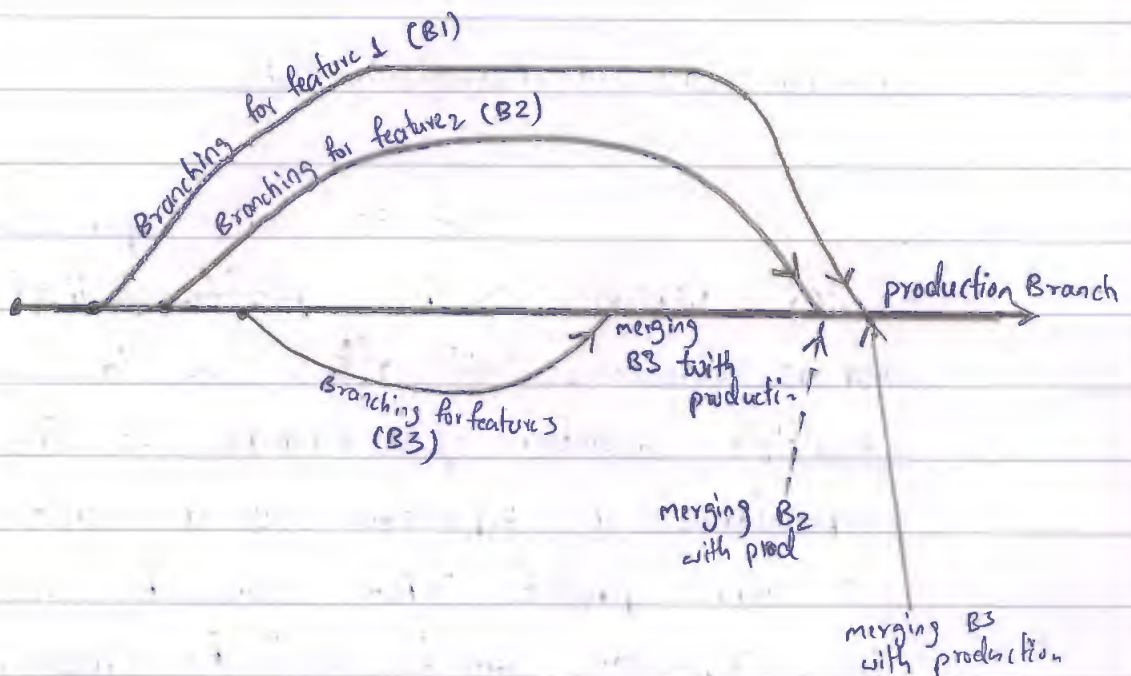 Branching for feature 1 (B1)
Branching for feature2 (B2)
production Branch
merging
B3 with
producti~
Branching for feature3
(B3)
merging B2
with prod
merging B3
with production